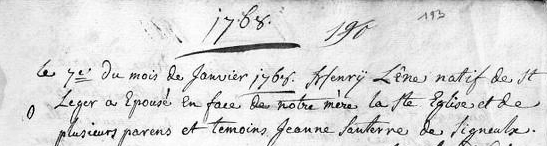 1768. 190 193
le 7e. du mois de Janvier 1768. Henrÿ Lêne natif de St
Leger a Epousé en face de notre mère la Ste Eglise et de
plusieurs parens et temoins Jeanne Sauterne de Signeulx.